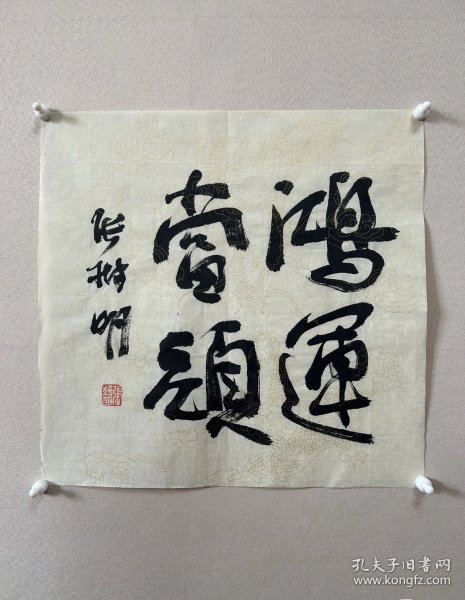 鴻運
當頭
张树明
孔夫子旧书网
www.kongfz.com